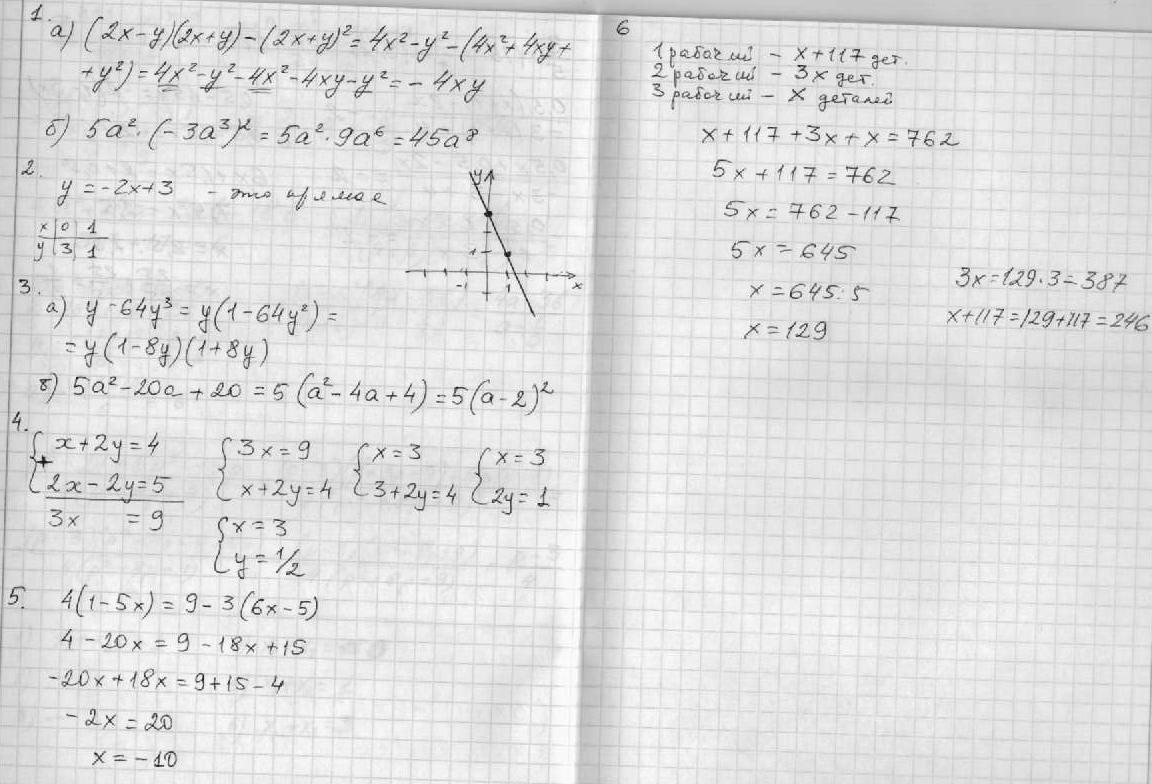 1.
а) (2x-y)(2x+y)-(2x+y)²=4x²-y²-(4x²+4xy+
+y²)=4x²-y²-4x²-4xy-y²=-4xy
б) 5a²·(-3a³)²=5a²·9a⁶=45a⁸
2.
y=-2x+3 - это прямая
x 0 1
y 3 1
y
1
-1 1 x
3.
а) y-64y³=y(1-64y²)=
=y(1-8y)(1+8y)
б) 5a²-20a+20=5(a²-4a+4)=5(a-2)²
4.
{x+2y=4 {3x=9 {x=3 {x=3
+
2x-2y=5 x+2y=4 3+2y=4 2y=1
3x =9 {x=3
y=1/2
5. 4(1-5x)=9-3(6x-5)
4-20x=9-18x+15
-20x+18x=9+15-4
-2x=20
x=-10
6
1 рабочий - x+117 дет.
2 рабочий - 3x дет.
3 рабочий - x деталей
x+117+3x+x=762
5x+117=762
5x=762-117
5x=645
x=645:5
x=129
3x=129·3=387
x+117=129+117=246